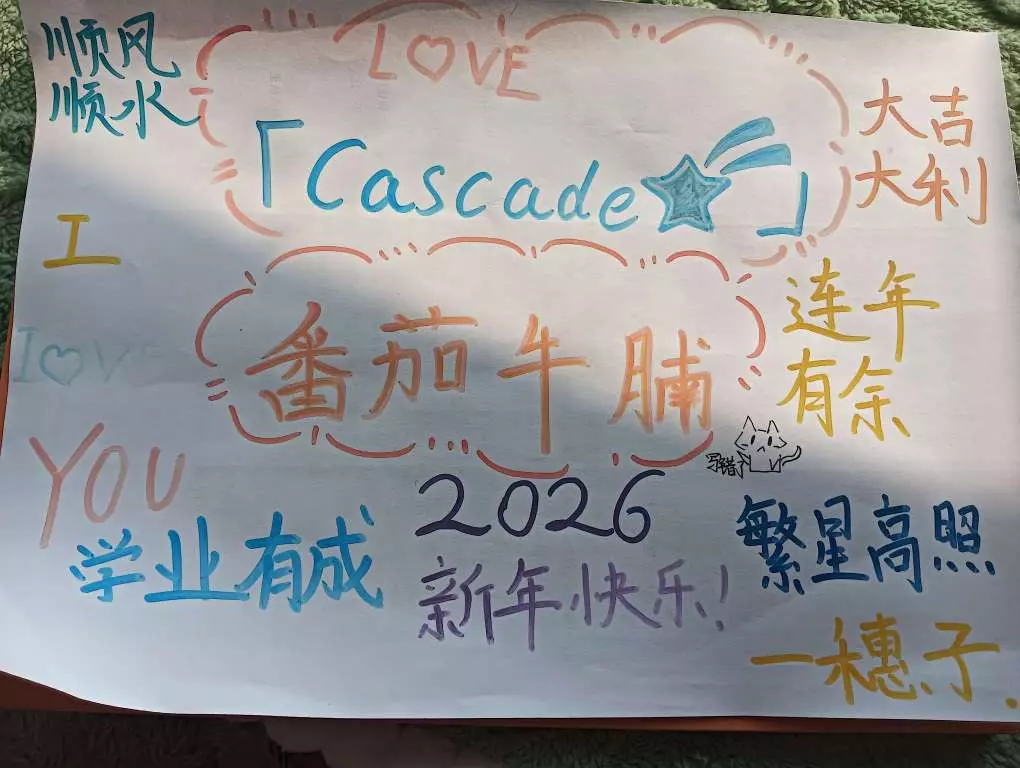 顺风
顺水
LOVE
「Cascade」
大吉
大利
I
love
YOU
番茄牛脯
写错了
连年
有余
2026
新年快乐！
学业有成
繁星高照
一穗子.